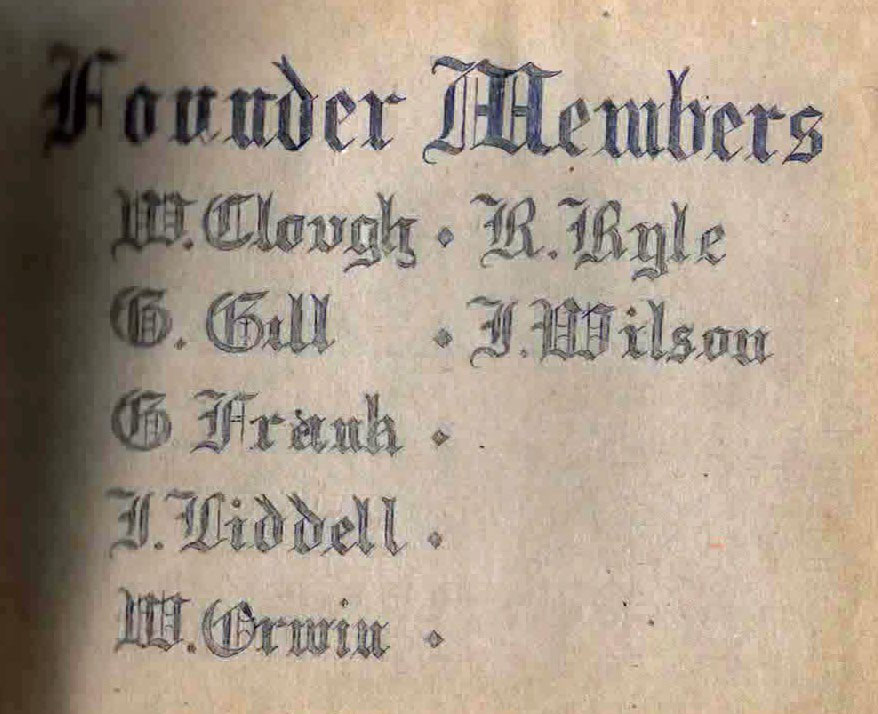 Founder Members
W. Clough · R. Ryle
G. Gill · J. Wilson
G Frank ·
J. Liddell ·
W. Orwin ·